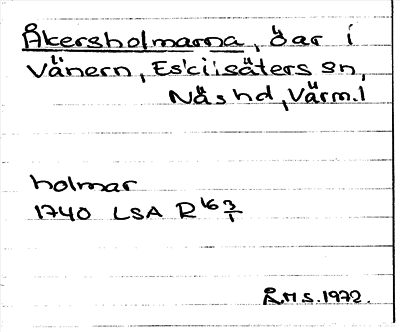 Åkersholmarna, öar i
Vänern, Eskilsäters sn,
Näs hd, Värm.l
holmar
1740 LSA R16 3/1
R.M S. 1972.